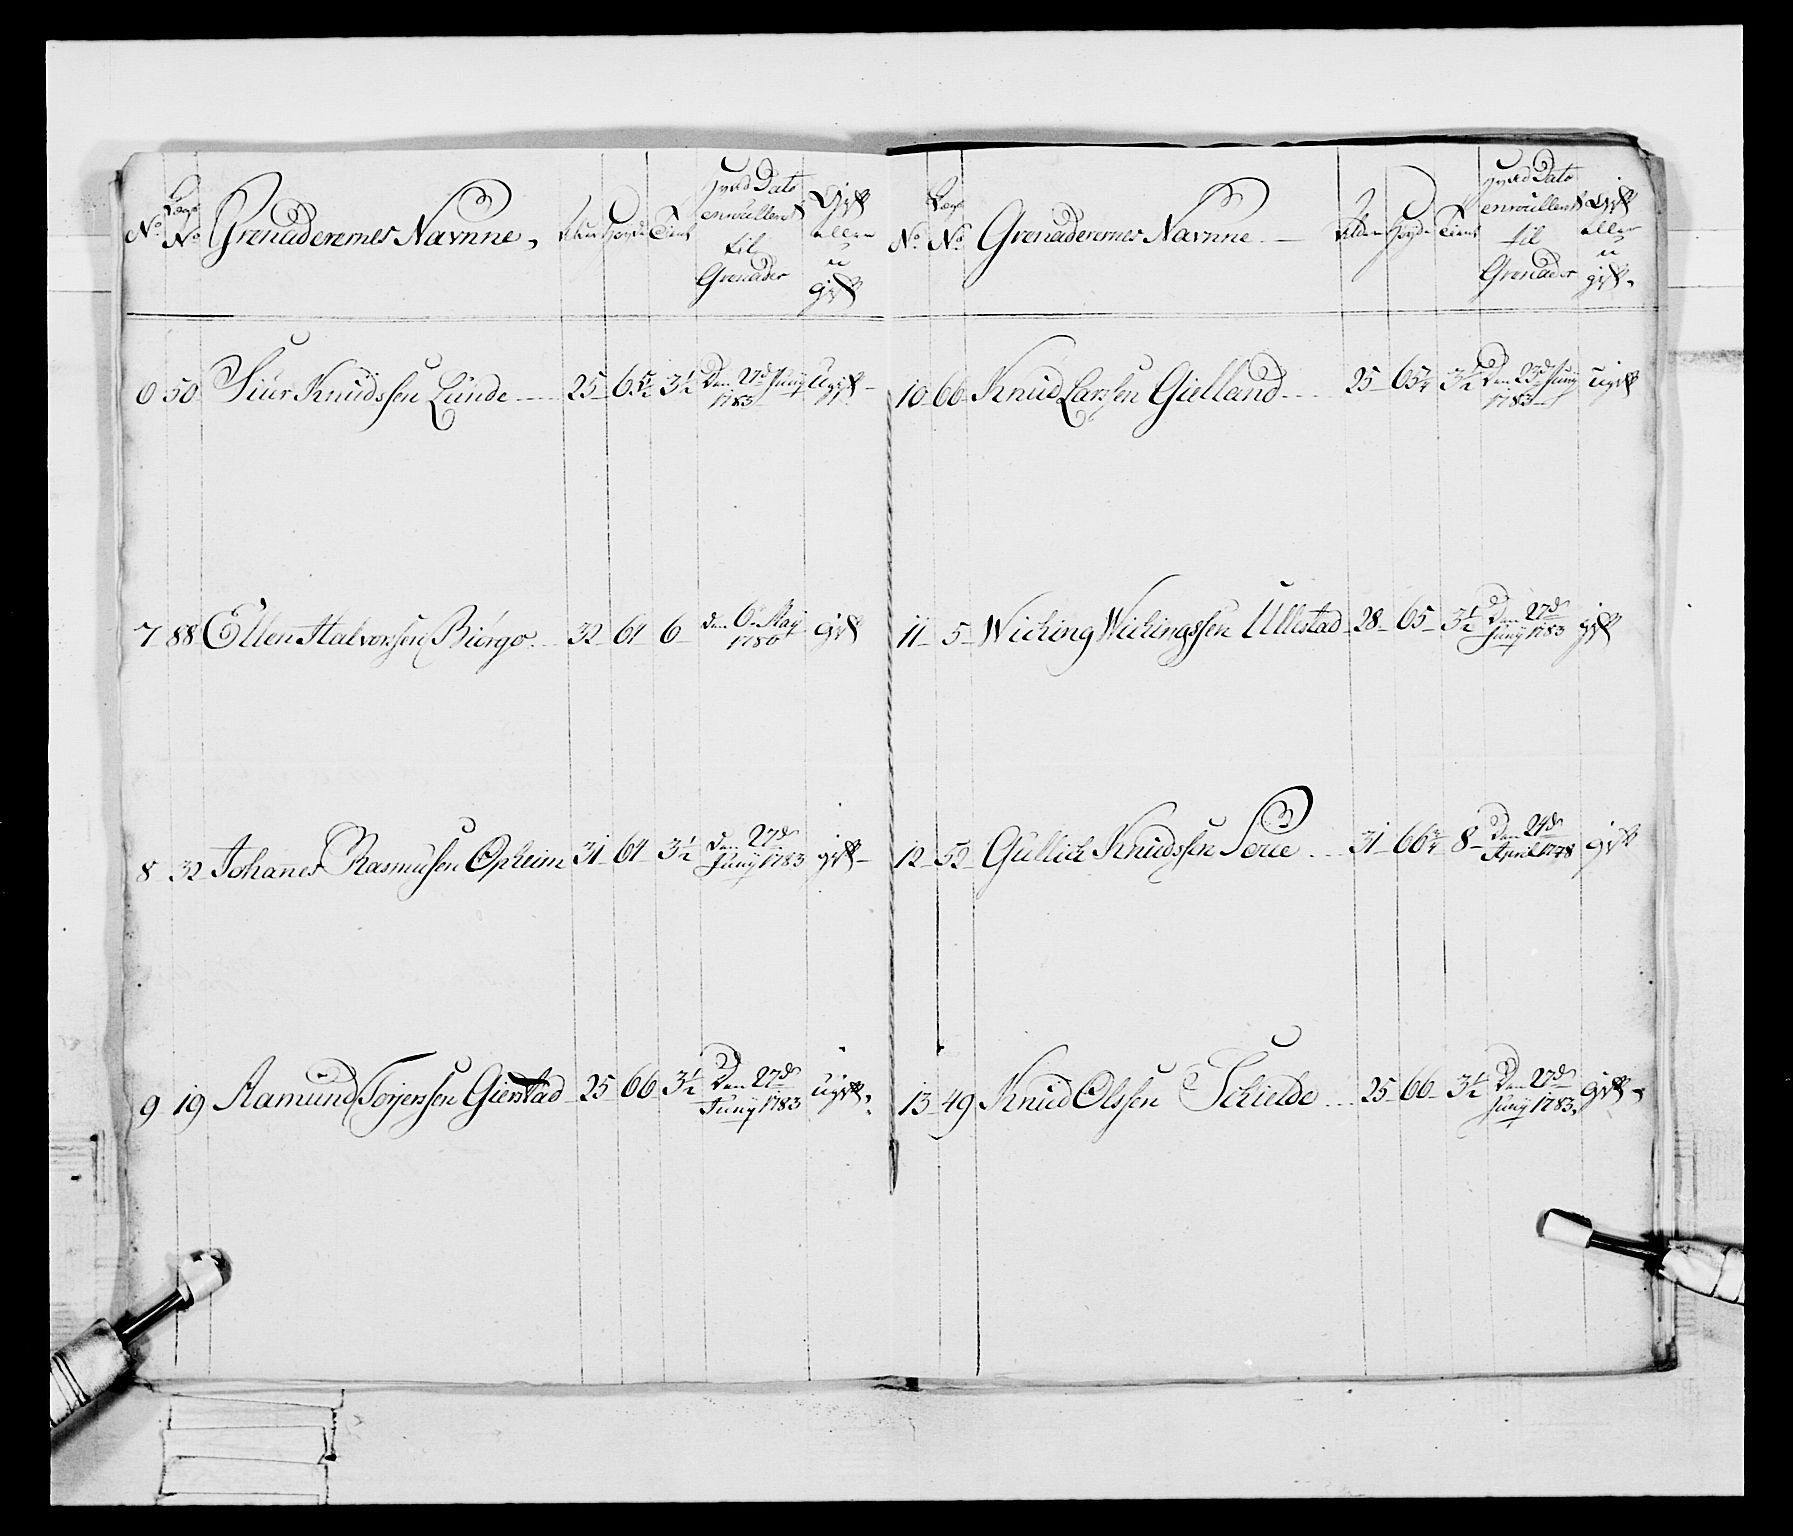 No Lægs No Grenaderernes Navnne, Alder Høyde Tient hvad Dato enroulleret til Grenader Gift eller u gift
6 50 Siur Knudssen Lunde 25 65 1/2 3 1/2 Den 27de Junÿ 1783 Ugift
7 88 Ellen Halvorssen Biørgo 32 64 6 den 6te Maÿ 1780 Gift
8 32 Johannes Rasmussen Opheim 31 64 3 1/2 den 27de Junÿ 1783 gift
9 19 Aamund Torjerssen Gierstad 25 66 3 1/2 Den 27de Junÿ 1783 ugift
No Lægs No Grenaderernes Navnne Alder Høyde Tient hvad Dato enroulleret til Grenader Gift eller u gift
10 66 Knud Larssen Gielland 25 65 3/4 3 1/2 Den 23de Junÿ 1783 ugift
11 5 Wiching Wichingssen Ullestad 28 65 3 1/2 Den 27de Junÿ 1783 gift
12 52 Gullich Knudssen 31 66 3/4 8 Den 24de April 1778 gift
13 49 Knud Olssen Schielde 25 66 3 1/2 Den 27de Junÿ 1783 gift